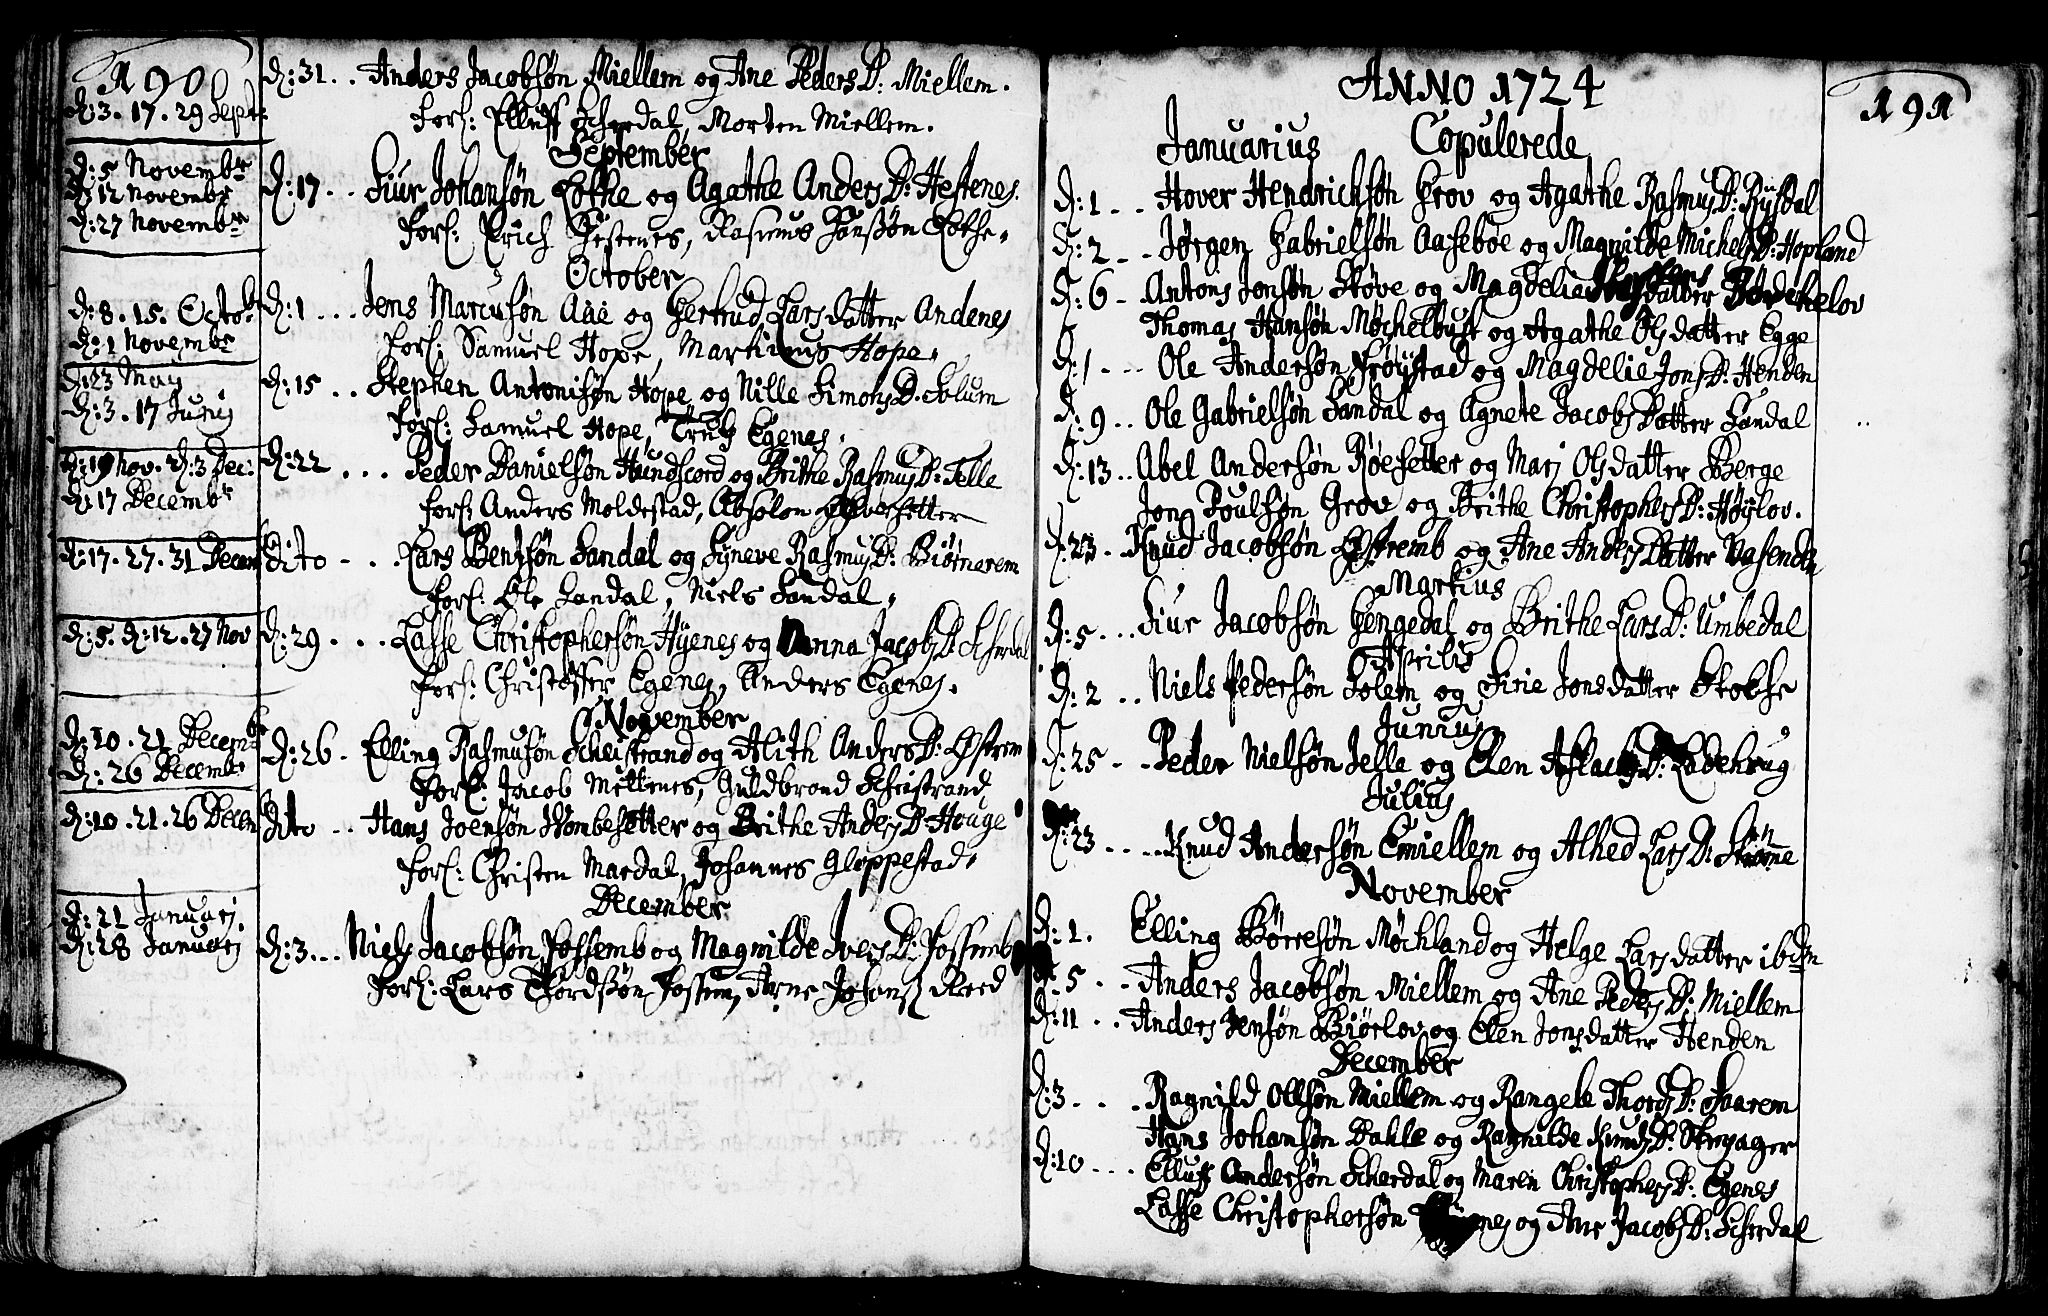 190
d: 3. 17. 29 Sept:
d: 5 Novembr
d: 12 Novembr
d: 27 Novembr
d: 8. 15. Octob:
d: 1 Novembr
d: 23 May
d: 3. 17 Junij
d: 19 Nov. d: 3 Dec:
d: 17 Decembr
d: 17. 27. 31 Decem
d: 5. d: 12. 27 Nov
d: 10. 21 Decembr
d: 26 Decembr
d: 10. 21. 26 Decem
d: 21 Januarj.
d: 28 Januarj
d: 31 . . Anders Jacobsøn Miellem og Ane Peders D: Miellem.
Forl: Elluff Scherdal, Morten Miellem.
September
d: 17 . . Siur Johansøn Lothe og Agathe Anders D: Hestenes.
Forl: Erich Hestenes, Rasmus Hanssøn Lothe.
October
d: 1 . . . Jens Marcusøn Aae og Gertrud Lars datter Andenes
Forl: Samuel Hope, Martinus Hope.
d: 15 . . Stephen Antonisøn Hope og Nille Simons D. Solum
Forl: Samuel Hope, Truls Egenes.
d: 22 . . . Peder Danielsøn Hundscord og Brithe Rasmus D: Telle
Forl: Anders Moldestad, Absolon
Dito - . . Lars Bentsøn Sandal og Syneve Rasmus D: Biørnerem
Forl: Ole Sandal, Niels Sandal.
d: 29 . . . Lasse Christophersøn Hyenes og Anna Jacobs D: Scherdal
Forl: Christoffer Egenes, Anders Egenes.
November
d: 26 . Elling Rasmusøn Scheistrand og Alith Anders D: Østrem
Forl: Jacob Meltenes, Guldbrand Scheistrand
Dito . . Hans Joensøn Wombesetter og Brithe Anders D: Houge
Forl: Christen Mardal, Johannes Gloppestad.
December
d: 3 . . . Niels Jacobsøn Fossemb og Magnilde Ivers D: Fossemb
Forl: Lars Thordssøn Fossum, Arne Johans: Reed
ANNO 1724
191
Januarius Copulerede
d: 1 . . Hover Hendrichsøn Grov og Agathe Rasmus D: Rysdal
d: 2 . . Jørgen Gabrielsøn Aaseboe og Magnilde Michels D: Hopland
d: 6 . Antons Jonsøn Støve og Magdelia datter
Thomas Hansøn Møchelbust og Agathe Ols datter Egge
d: 1 . . . Ole Andersøn Frøystad og Magdelie Jons D: Henden
d: 9 . . Ole Gabrielsøn Sandal og Agnete Jacobs Datter Sandal
d: 13 . . Abel Andersøn Røesetter og Marj Ols datter Berge
Jon Poulsøn Grov og Brithe Christophers D: Høylov.
d: 23 . . Knud Jacobsøn Østremb og Ane Anders Datter Vasenden
Martius
d: 5 . . . Siur Jacobsøn Gengedal og Brithe Lars D: Umbedal
Aprilis
d: 2 . . Niels Pedersøn Solem og Sirie Jonsdatter
Junius
d: 25 . . Peder Nielsøn Telle og Elen Aslachs D: Ladehrug
Julius
d: 23 . . . . Knud Andersøn Emiellem og Alhed Lars D:
November
d: 1. Elling Børresøn Møchland og Helge Lars datter ibdm
d: 5 . . Anders Jacobsøn Miellem og Ane Peders D: Miellem
d: 11 . . Anders Jensøn Biørlov og Elen Jonsdatter Henden
December
d: 3 . . . Ragnild Ollsøn Miellem og Rangele Thords D: Saarem
Hans Johansøn Dahle og Ragnilde Knuds D:
d: 10 . . . Elluff Andersøn Scherdal og Maren Christophers D: Egenes
Lasse Christophersøn og Ane Jacobs D: Scherdal